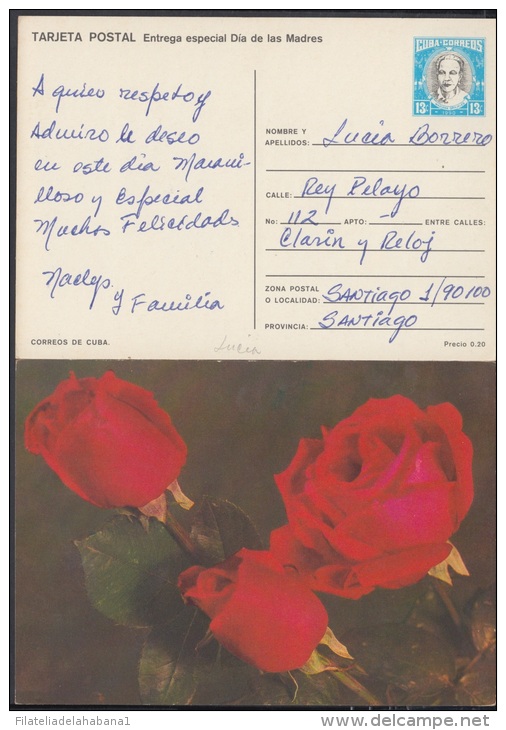 TARJETA POSTAL Entrega especial Día de las Madres
CUBA-CORREOS
13c 13c
A quien respeto y
Admiro le deseo
en este día Maravi-
lloso y Especial
Muchas Felicidades
y Familia
CORREOS DE CUBA.
NOMBRE Y
APELLIDOS: Lucía Borrero
CALLE: Rey Pelayo
No: 112 APTO: - ENTRE CALLES:
Clarín y Reloj
ZONA POSTAL
O LOCALIDAD: SANTIAGO 1/90100
PROVINCIA: SANTIAGO
Precio 0.20
Lucia
Filateliadelahabana1
http://www.delcampe.net